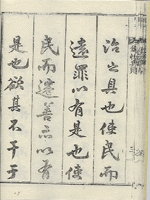 治之具也使民而
遠罪以有是也使
民而遷善亦以有
是也欲其不干于